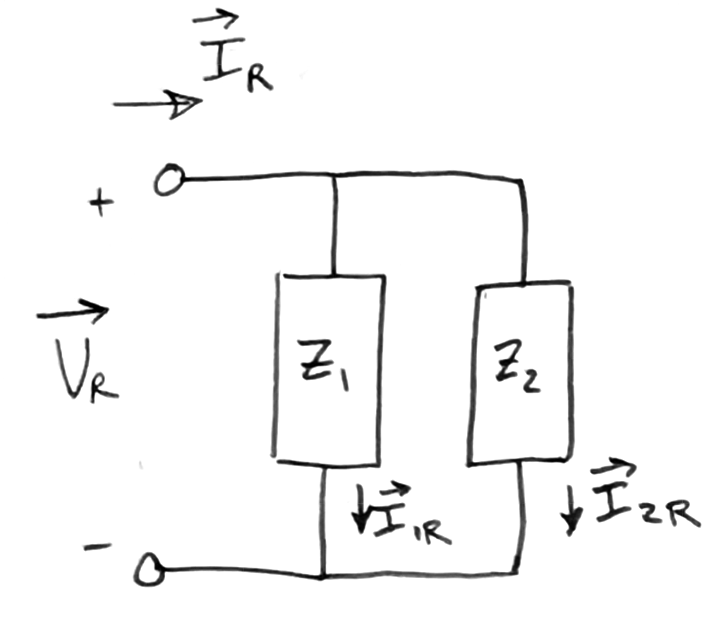 I⃗_R
+
V⃗_R
Z₁
Z₂
I⃗_1R
I⃗_2R
-